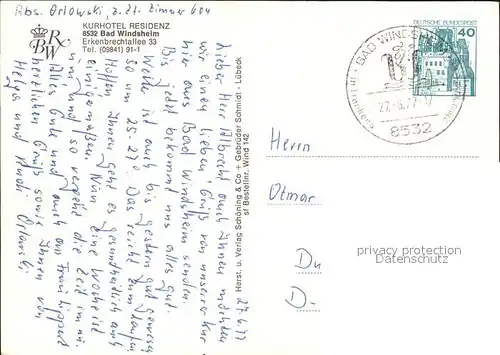 Abs. Orlowski, z. Zt. Zimmer 604
KURHOTEL RESIDENZ
8532 Bad Windsheim
Erkenbrechtallee 33
Tel. (09841) 91-1
27.6.77
Lieber Herr Albrecht auch Ihnen möchten
wir einen lieben Gruß von unserer Kur
hier aus Bad Windsheim senden.
Bis jetzt bekommt uns alles gut.
Wetter ist auch bis gestern gut gewesen
so um 25-27°. Das reicht zum laufen
Hoffen Ihnen geht es gesundheitlich auch
einigermaßen. Nun eine Woche ist
um und so vergeht die Zeit im nu.
Alles Gute und auch an Frau
herzlichen Gruß sowie Ihnen von
Helga und Orlowski
Herst. u. Verlag Schöning & Co + Gebrüder Schmidt · Lübeck
sf Bestellnr. Wind 142
DEUTSCHE BUNDESPOST
40
BAD WINDSHEIM
27.-6.77
8532
Herrn
Otmar
Du
D.
privacy protection
Datenschutz